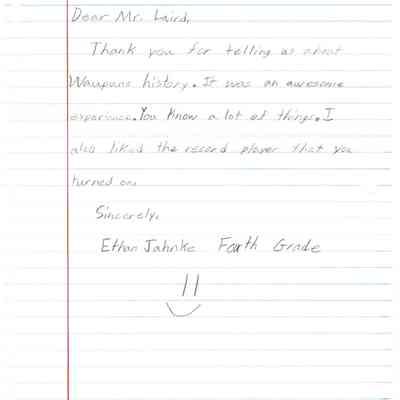 Dear Mr. Laird,
Thank you for telling us about
Waupuns history. It was an awesome
experience. You know a lot of things. I
also liked the record player that you
turned on.
Sincerely,
Ethan Jahnke Fourth Grade